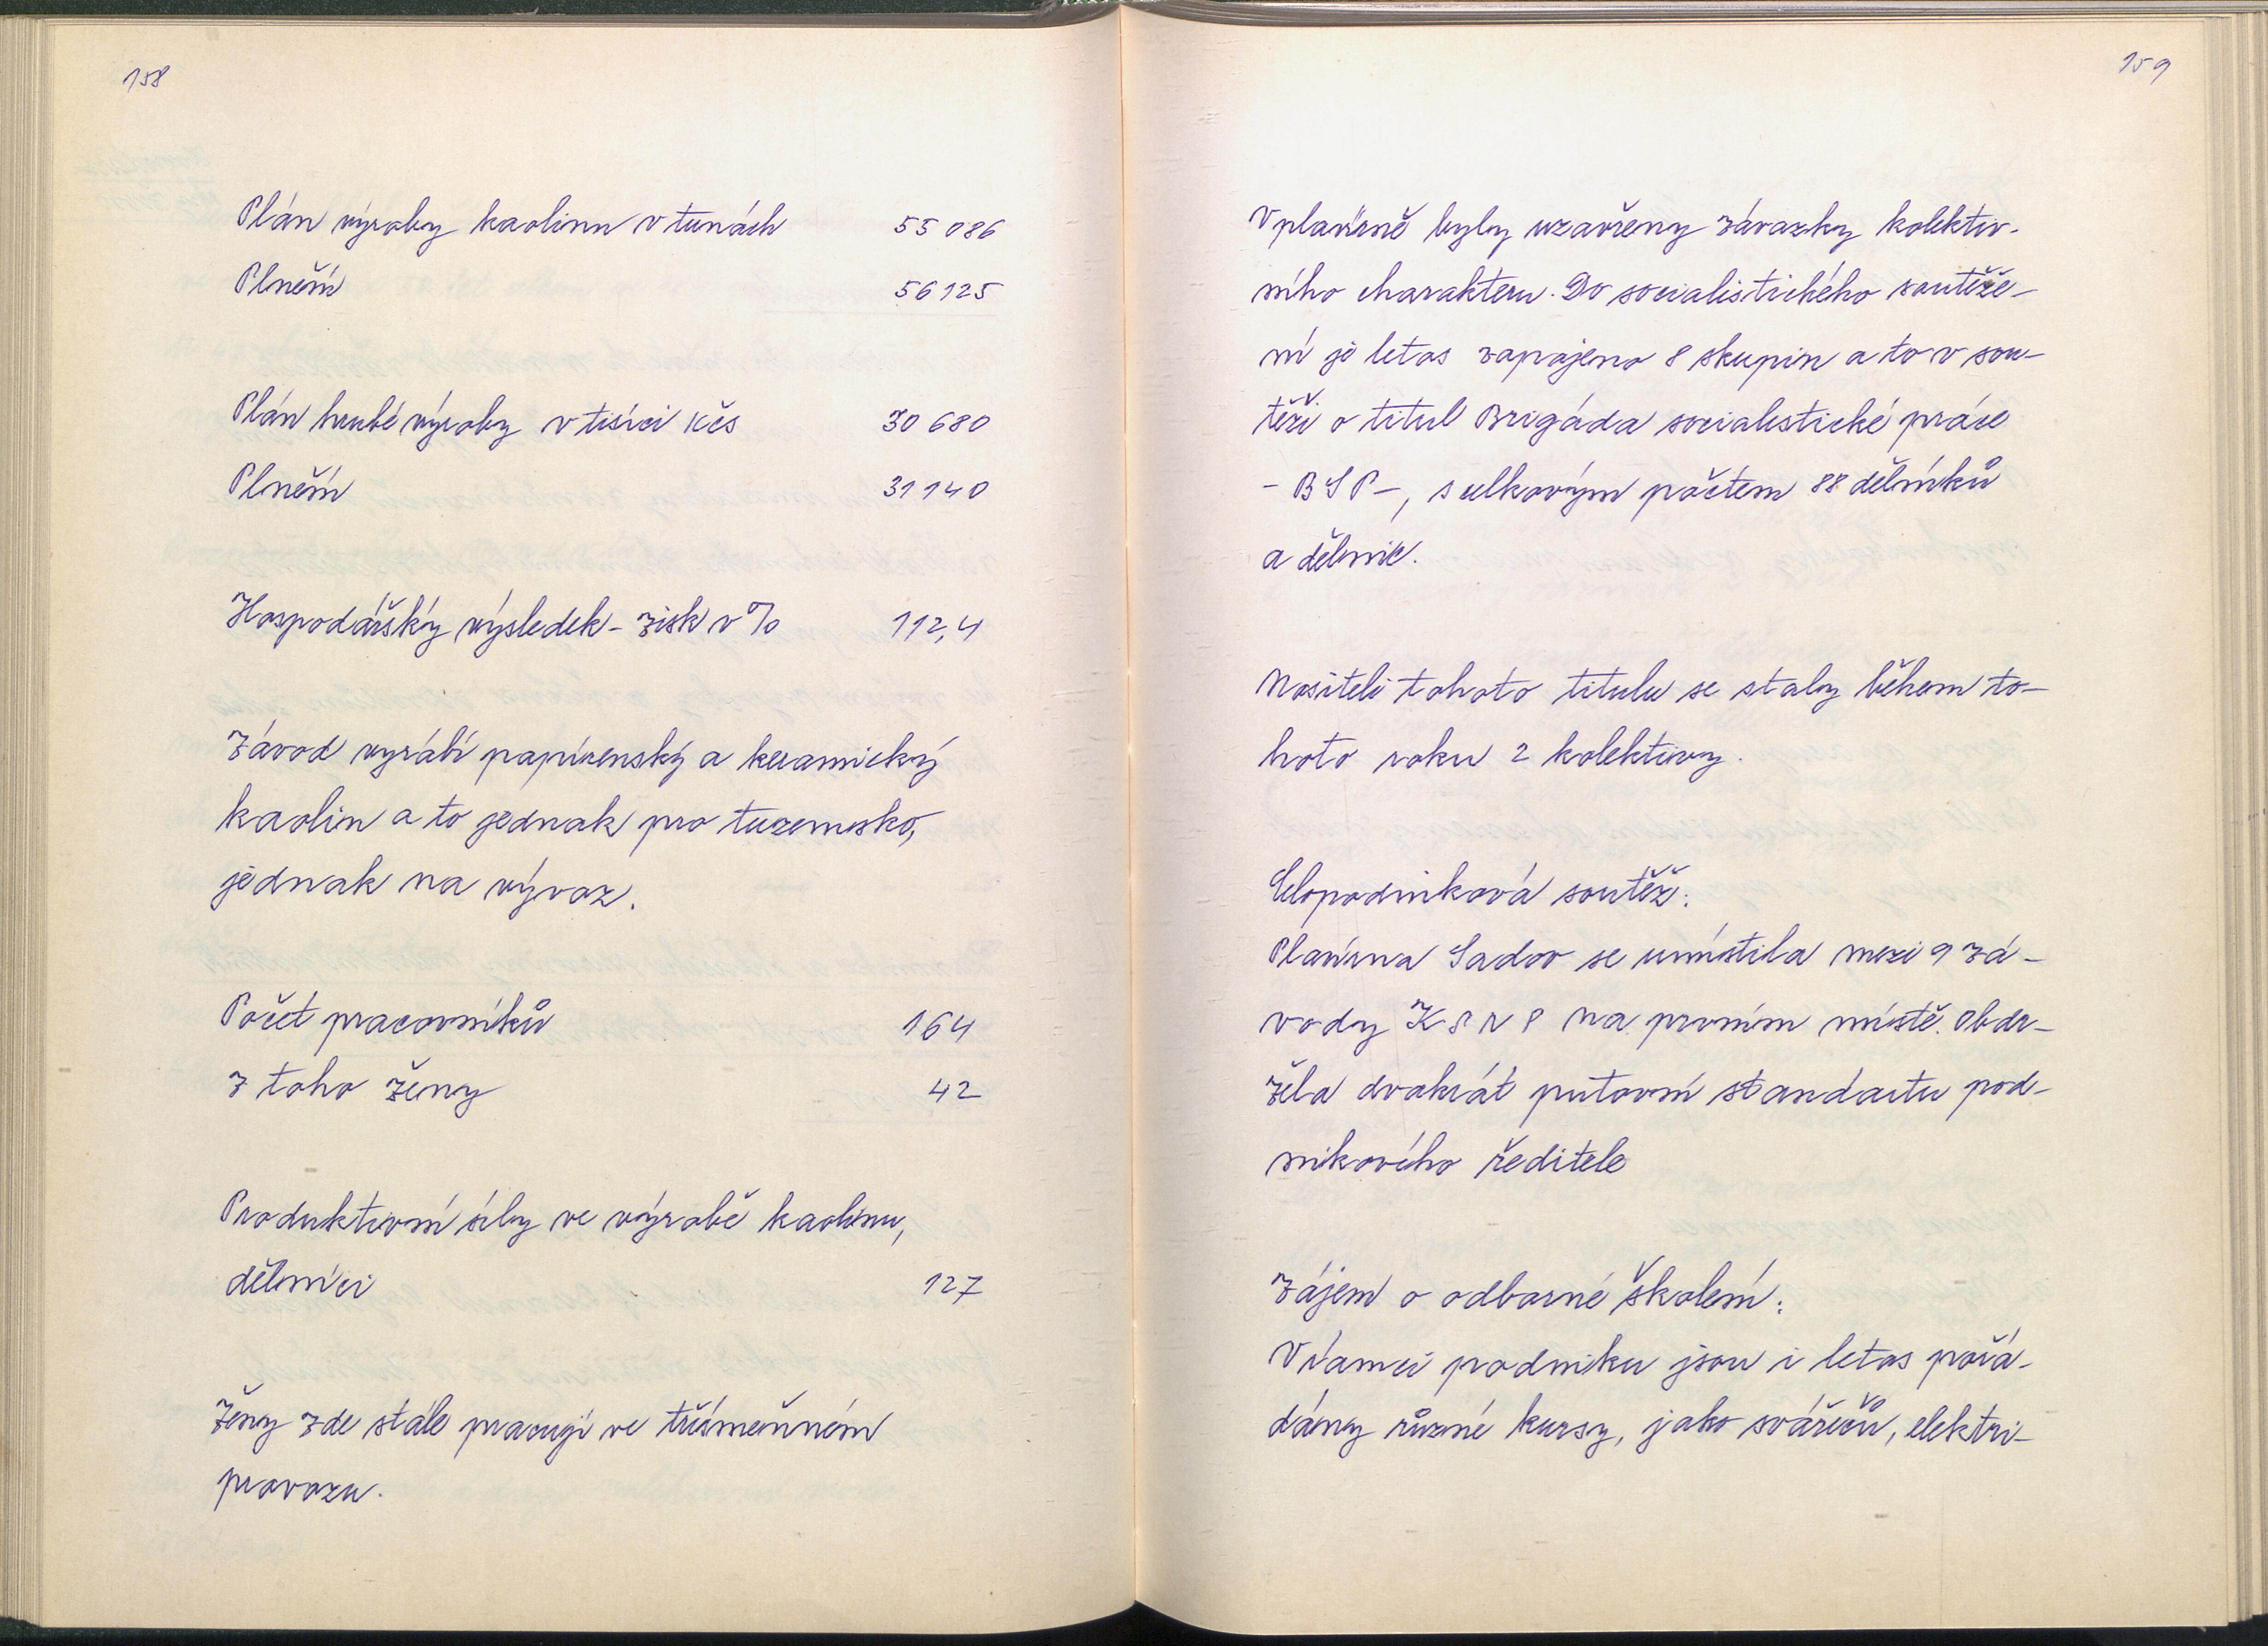 158
Plán výroby kaolinu v tunách 55 086
Plnění 56 125
Plán hrubé výroby v tisíci Kčs 30 680
Plnění 31 140
Hospodářský výsledek - zisk v % 112,4
Závod vyrábí papírenský a keramický
kaolin a to jednak pro tuzemsko,
jednak na vývoz.
Počet pracovníků 164
z toho ženy 42
Produktivní síly ve výrobě kaolinu,
dělníci 127
Ženy zde stále pracují ve třísměnném
provozu.
159
V plavírně byly uzavřeny závazky kolektiv-
ního charakteru. Do socialistického soutěže-
ní je letos zapojeno 8 skupin a to v sou-
těži o titul Brigáda socialistické práce
- BSP -, s celkovým počtem 88 dělníků
a dělnic.
Nositeli tohoto titulu se staly během to-
hoto roku 2 kolektivy.
Celopodniková soutěž:
Plavírna Sadov se umístila mezi 9 zá-
vody KSNP na prvním místě. Obdr-
žela dvakrát putovní standartu pod-
nikového ředitele
Zájem o odborné školení:
V rámci podniku jsou i letos pořá-
dány různé kursy, jako svářečů, elektri-